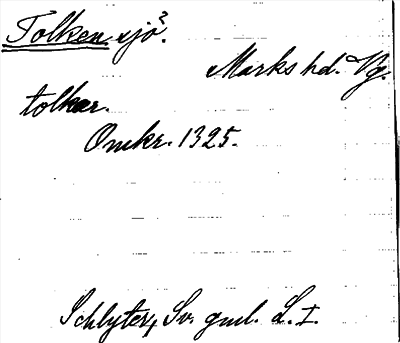 Tolken sjö?
Marks hd. Vg.
tolker.
Omkr. 1325.
Schlyter, Sv. gml. L. I.